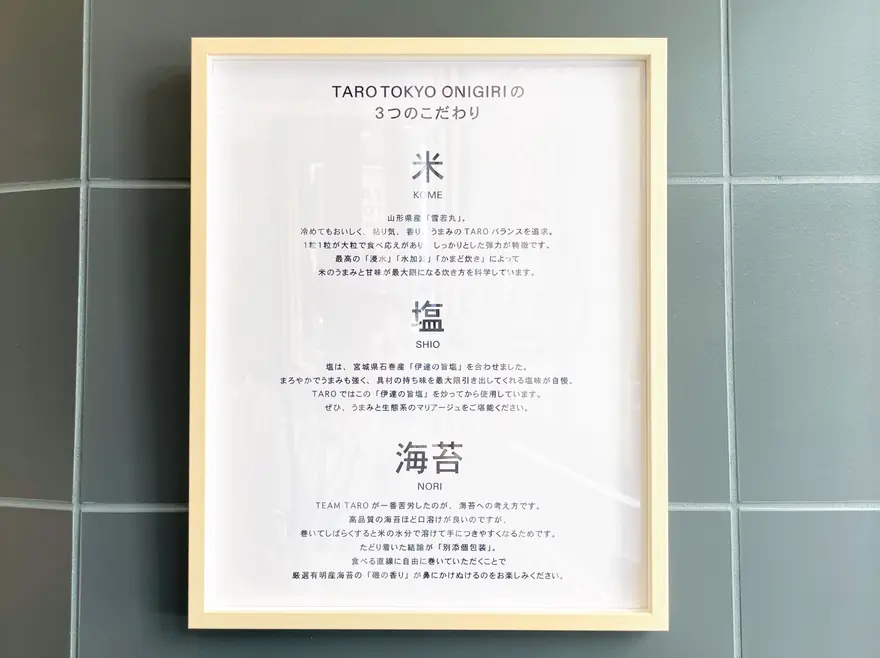 TARO TOKYO ONIGIRIの
3つのこだわり
米
KOME
山形県産「雪若丸」。
冷めてもおいしく、粘り気、香り、うまみのTAROバランスを追求。
1粒1粒が大粒で食べ応えがあり、しっかりとした弾力が特徴です。
最高の「浸水」「水加減」「かまど炊き」によって
米のうまみと甘味が最大限になる炊き方を科学しています。
塩
SHIO
塩は、宮城県石巻産「伊達の旨塩」を合わせました。
まろやかでうまみも強く、具材の持ち味を最大限引き出してくれる塩味が自慢。
TAROではこの「伊達の旨塩」を炒ってから使用しています。
ぜひ、うまみと生態系のマリアージュをご堪能ください。
海苔
NORI
TEAM TAROが一番苦労したのが、海苔への考え方です。
高品質の海苔ほど口溶けが良いのですが、
巻いてしばらくすると米の水分で溶けて手につきやすくなるためです。
たどり着いた結論が「別添個包装」。
食べる直線に自由に巻いていただくことで
厳選有明産海苔の「磯の香り」が鼻にかけぬけるのをお楽しみください。